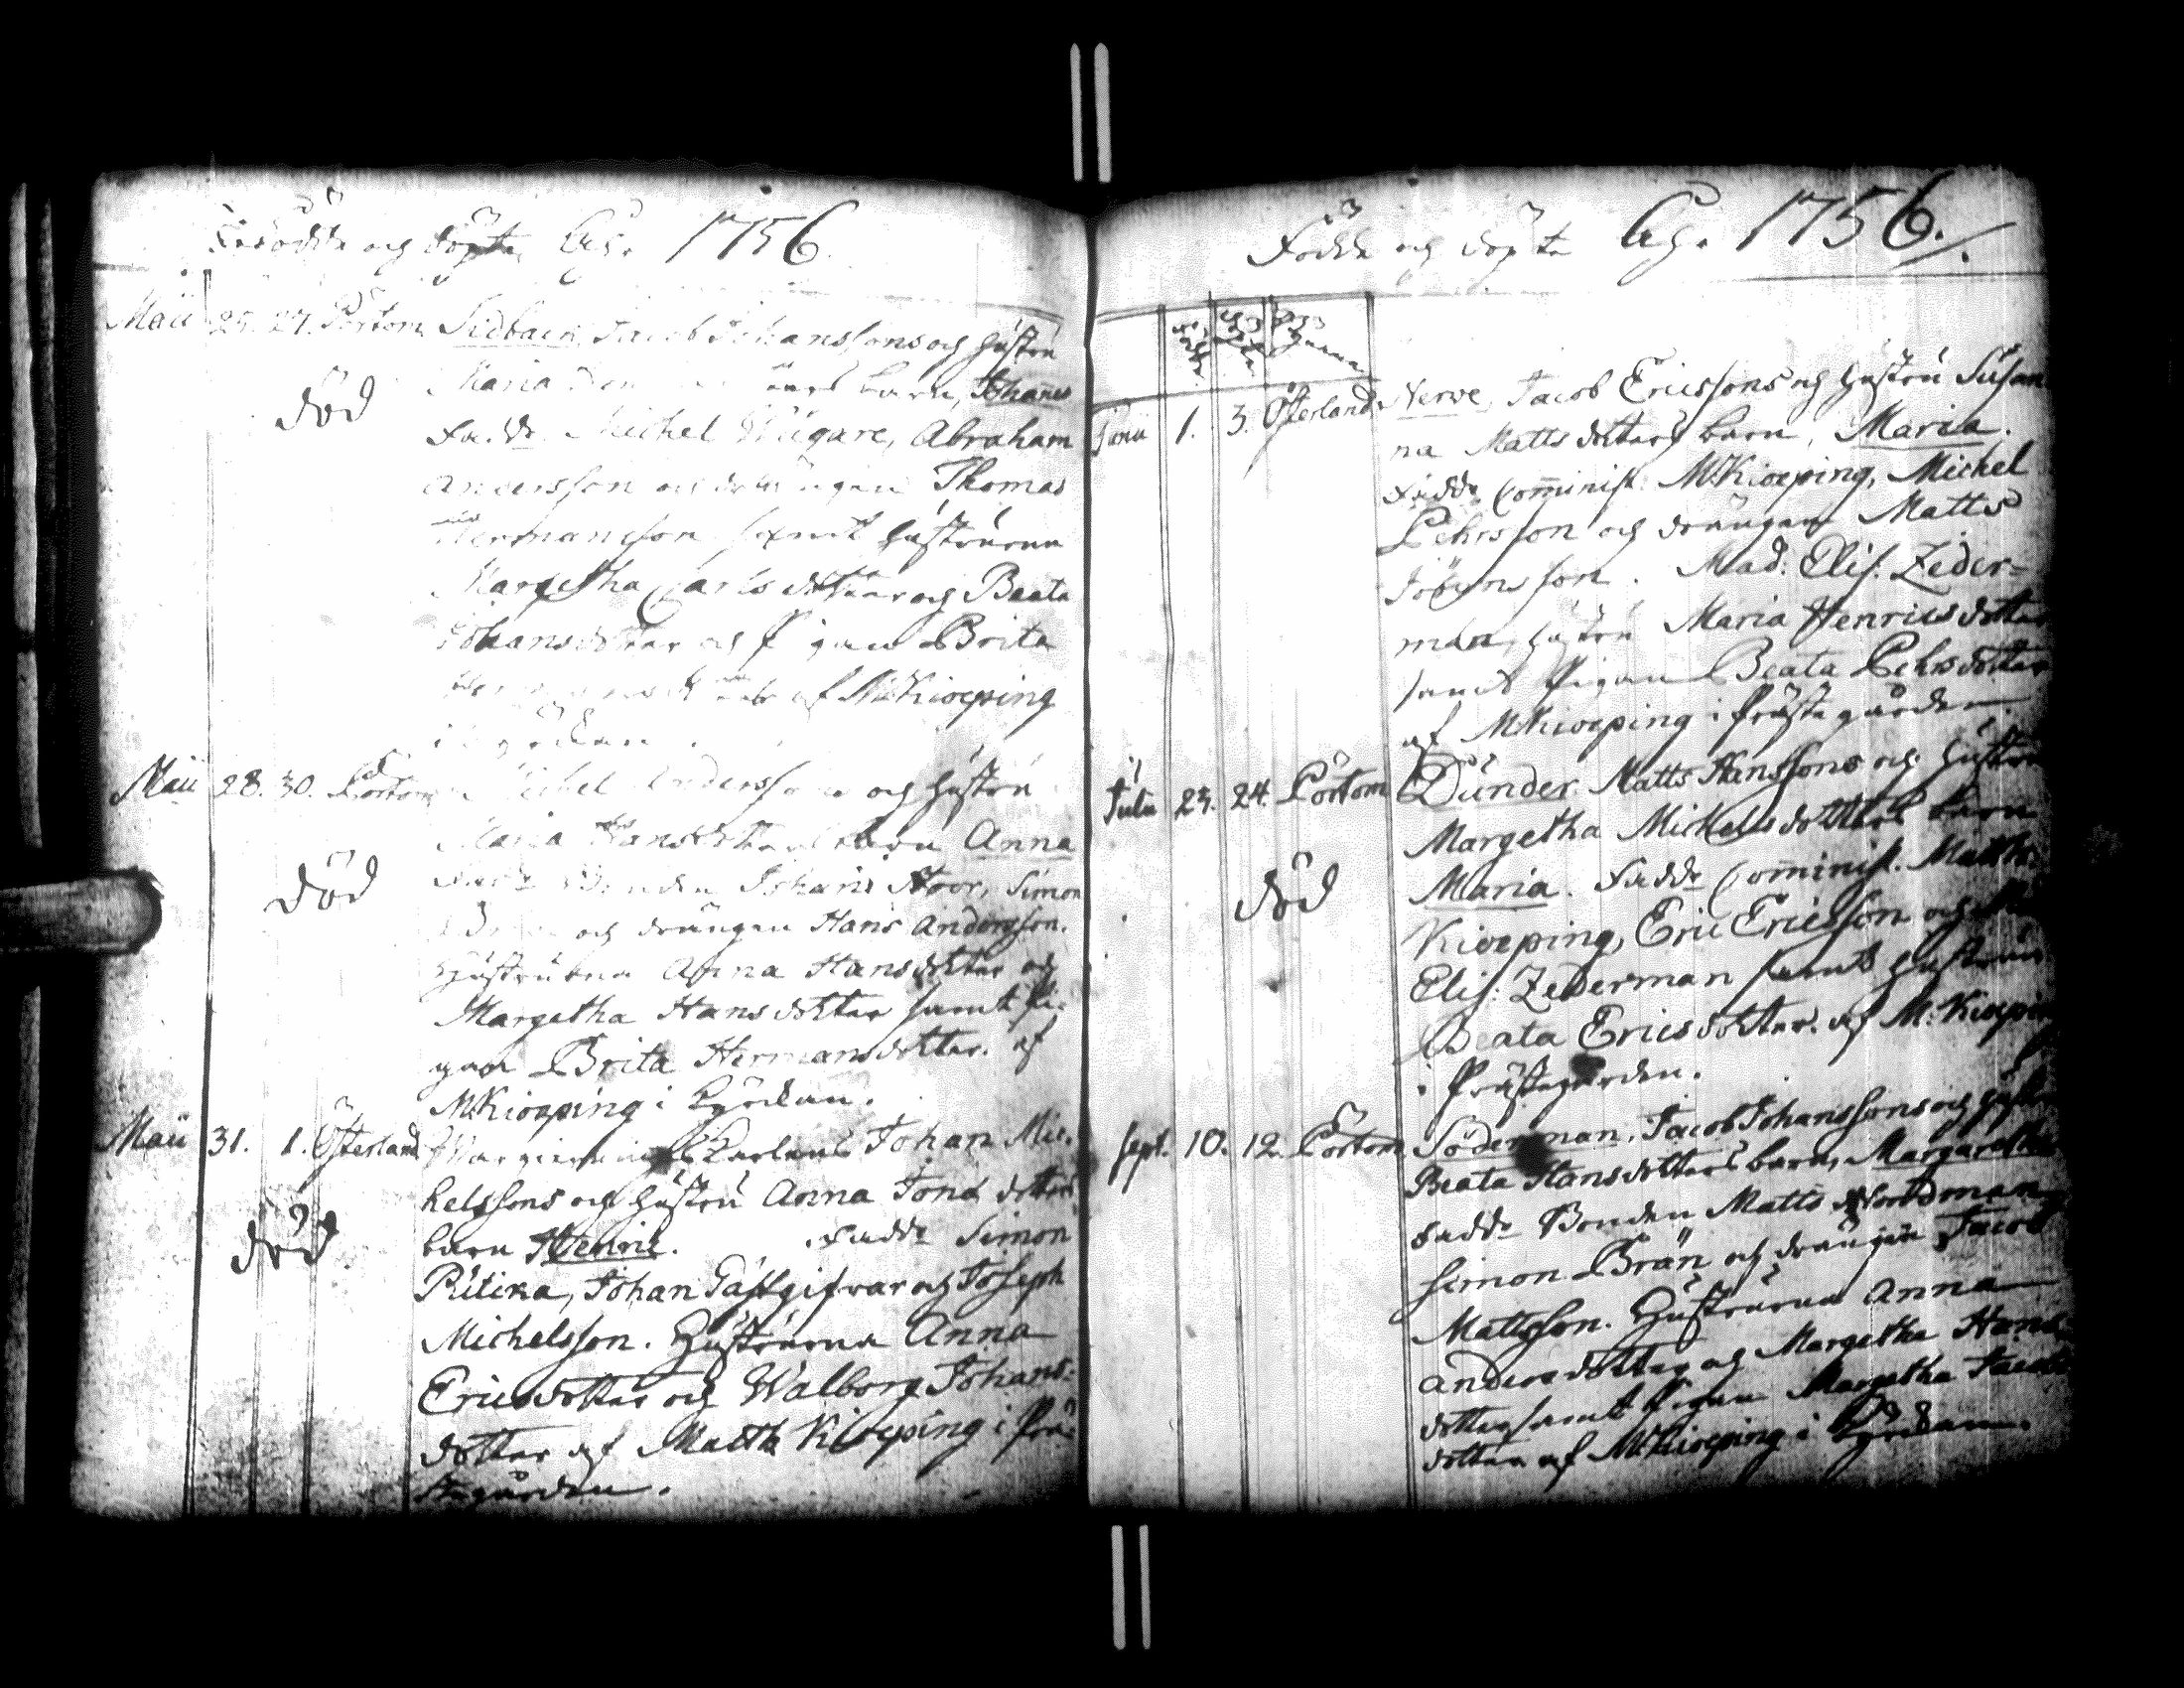 Födde och döpte Åhr 1756
Maii 25. 27. Pörtom Sidback, Jacob Johanssons och hustru
Maria barn, Johanes
död
Fadd. Michel Wägare, Abraham
Andersson och drängen Thomas
Hermansson samt hustrurna
Margetha Carlsdotter och Beata
Johansdotter och Pigan Brita
af M.Kioeping
i kyrckan.
Maii 28. 30. Pörtom Michel Anderssons och hustru
Maria Hansdotters barn Anna
död
Fadd. Bonden Johans Stoor, Simon
och drängen Hans Andersson.
Hustrurna Anna Hansdotter och
Margetha Hansdotter samt Pi-
gan Brita Hermansdotter. af
M.Kioeping i kyrckan.
Maii 31. 1. Österland Johan Mic-
helssons och hustru Anna dotters
död
barn Henric. Fadd. Simon
Pitika, Johan Gästgifvar och Joseph
Michelsson. Hustrurna Anna
Ericsdotter och Walborg Johans-
dotter af Matth Kioeping i Prä-
stegården.
Födde och döpte Åhr 1756.
Junii 1. 3. Österland Nerve, Jacob Ericssons och hustru Susan
na Mattsdotters barn, Maria.
Fadd. Comminist. M.Kioeping, Michel
Pehrsson och drängen Matts
Jöransson. Mad: Elis: Zeder=
man, hustru Maria Henricsdotter
samt Pigan Beata Pehrsdotter
af M.Kioeping i Prästegården.
Julii 23. 24. Pörtom Dunder Matts Hanssons och hustru
Margetha Michelsdotters barn
död
Maria. Fadd. Comminist. Matth.
Kioeping, Eric Ericsson och
Elis: Zederman samt hustru
Beata Ericsdotter. af M.Kioeping
i Prästegården.
Sept. 10. 12. Pörtom Söderman, Jacob Johanssons och hustru
Beata Hansdotters barn, Margaretha
Fadd. Bonden Matts Nordman
Simon Brän och drängen Jacob
Mattsson. Hustrurna Anna
Andersdotter och Margetha Hans
dotter samt Pigan Margetha Jacobs
dotter af M.Kioeping i kyrckan.